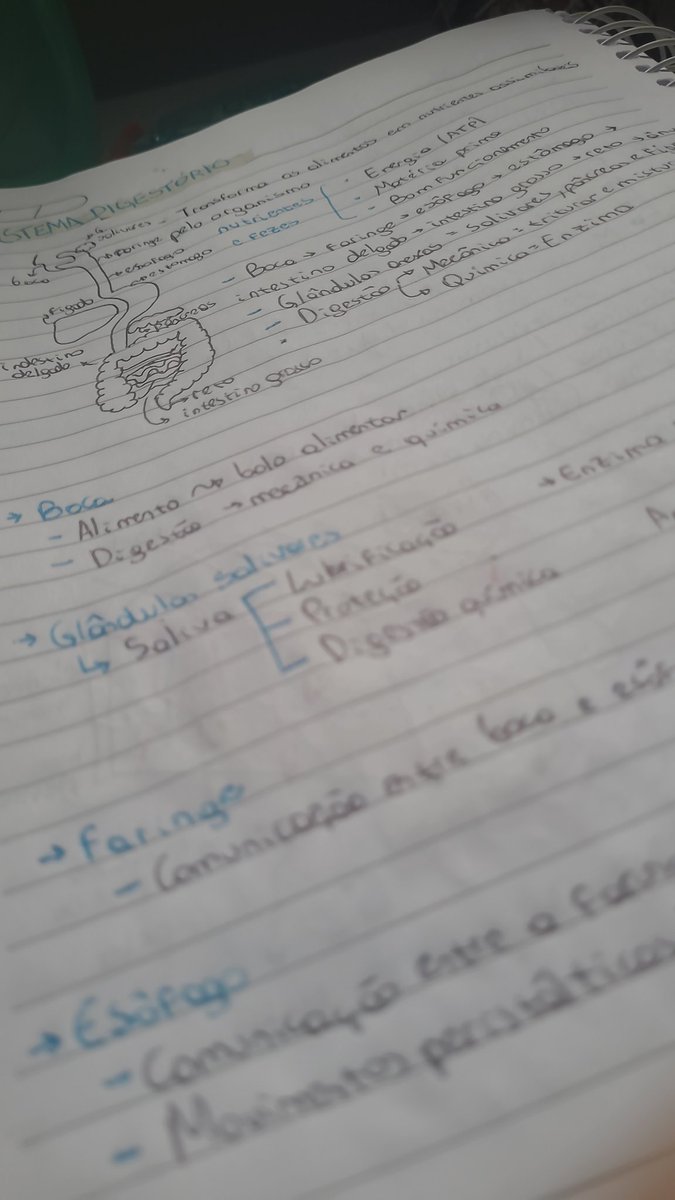 STEMA DIGESTÓRIO
- Transforma os alimentos em nutrientes assimiláveis
pelo organismo
nutrientes
e fezes
· Energia (ATP)
· Matéria prima
- Bom funcionamento
salivares
faringe
esôfago
estômago
boca
fígado
pâncreas
intestino
delgado
reto
intestino grosso
- Boca → faringe → esôfago → estômago →
intestino delgado → intestino grosso → reto → ân
- Glândulas anexas = Salivares, pâncreas e fíg
- Digestão Mecânica = triturar e mistur
↳ Química = Enzima
→ Boca
- Alimento ↝ bolo alimentar
- Digestão → mecânica e química
→ Enzima
→ Glândulas salivares
↳ Saliva
Lubrificação
Proteção
Digestão química
→ Faringe
- Comunicação entre boca e esôf
→ Esôfago
- Comunicação entre a farin
- Movimentos peristálticos